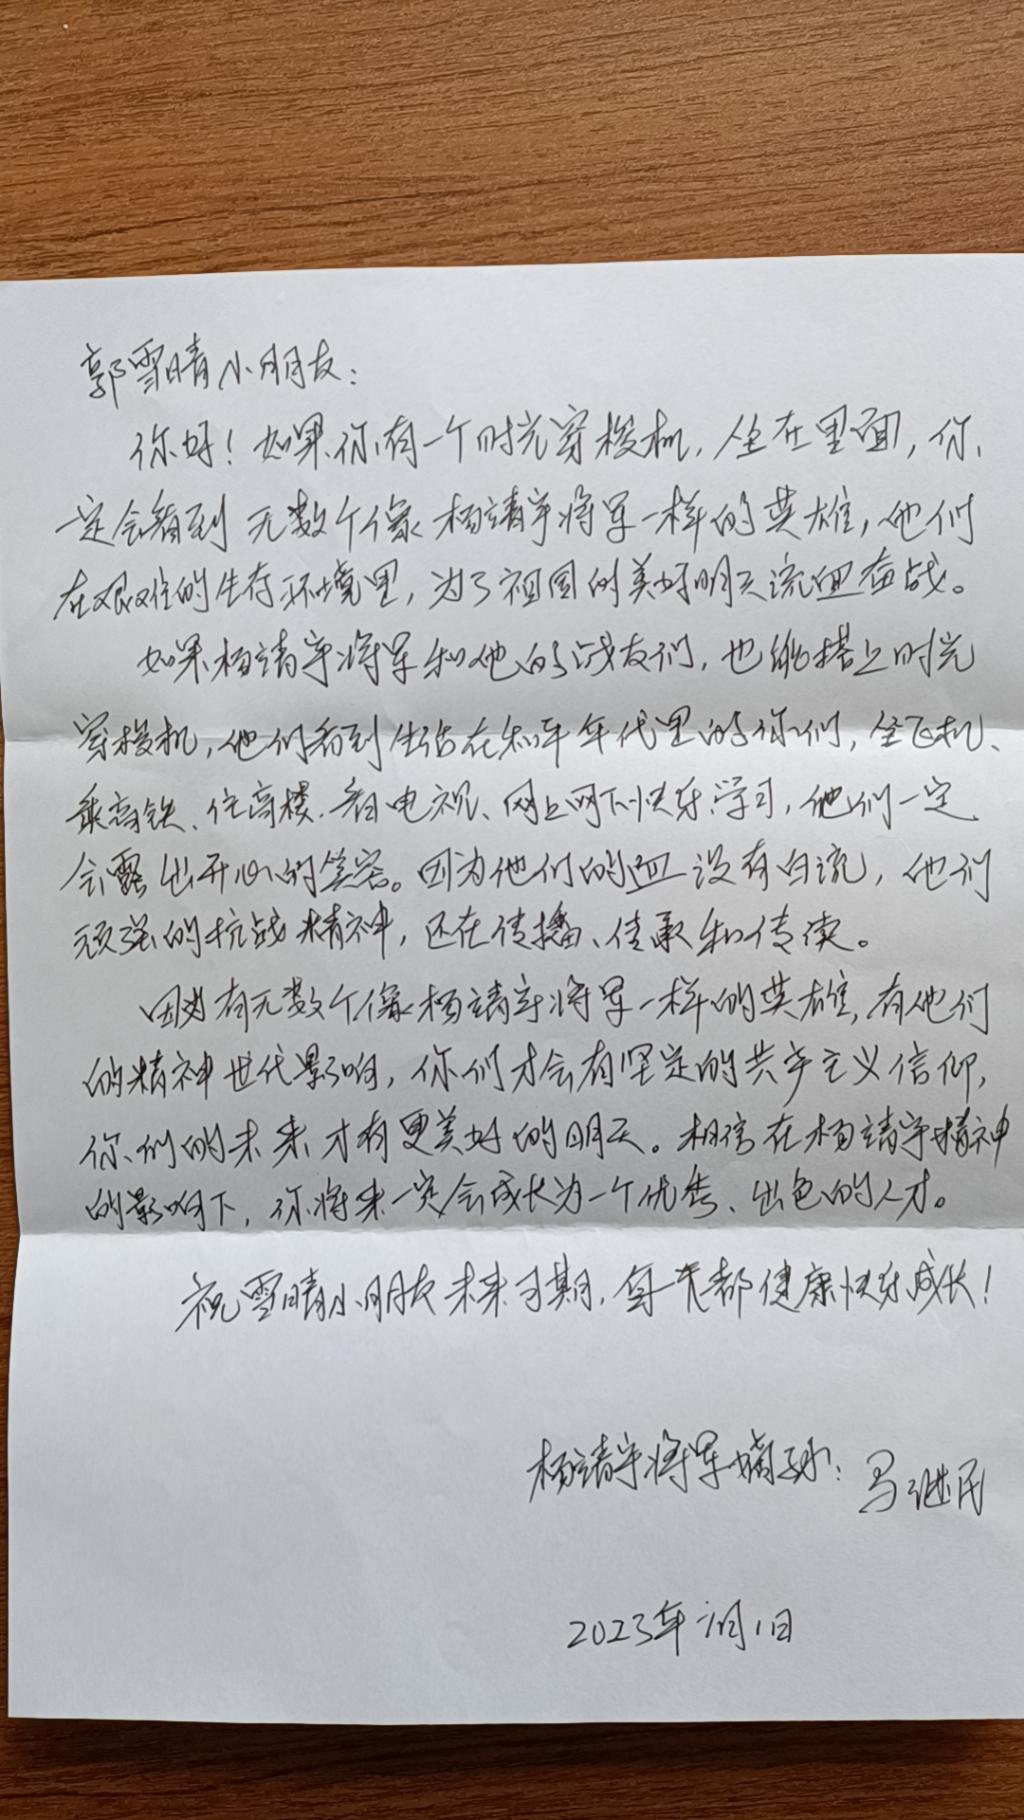 郭雪晴小朋友：
你好！如果你有一个时光穿梭机，坐在里面，你
一定会看到无数个像杨靖宇将军一样的英雄，他们
在艰难的生存环境里，为了祖国的美好明天流血奋战。
如果杨靖宇将军和他的战友们，也能搭上时光
穿梭机，他们看到生活在和平年代里的你们，坐飞机、
乘高铁、住高楼、看电视、网上网下快乐学习，他们一定
会露出开心的笑容。因为他们的血没有白流，他们
顽强的抗战精神，还在传播、传承和传读。
因为有无数个像杨靖宇将军一样的英雄，有他们
的精神世代影响，你们才会有坚定的共产主义信仰，
你们的未来才有更美好的明天。相信在杨靖宇精神
的影响下，你将来一定会成长为一个优秀、出色的人才。
祝雪晴小朋友未来可期，每天都健康快乐成长！
杨靖宇将军嫡孙：马继民
2023年 月1日